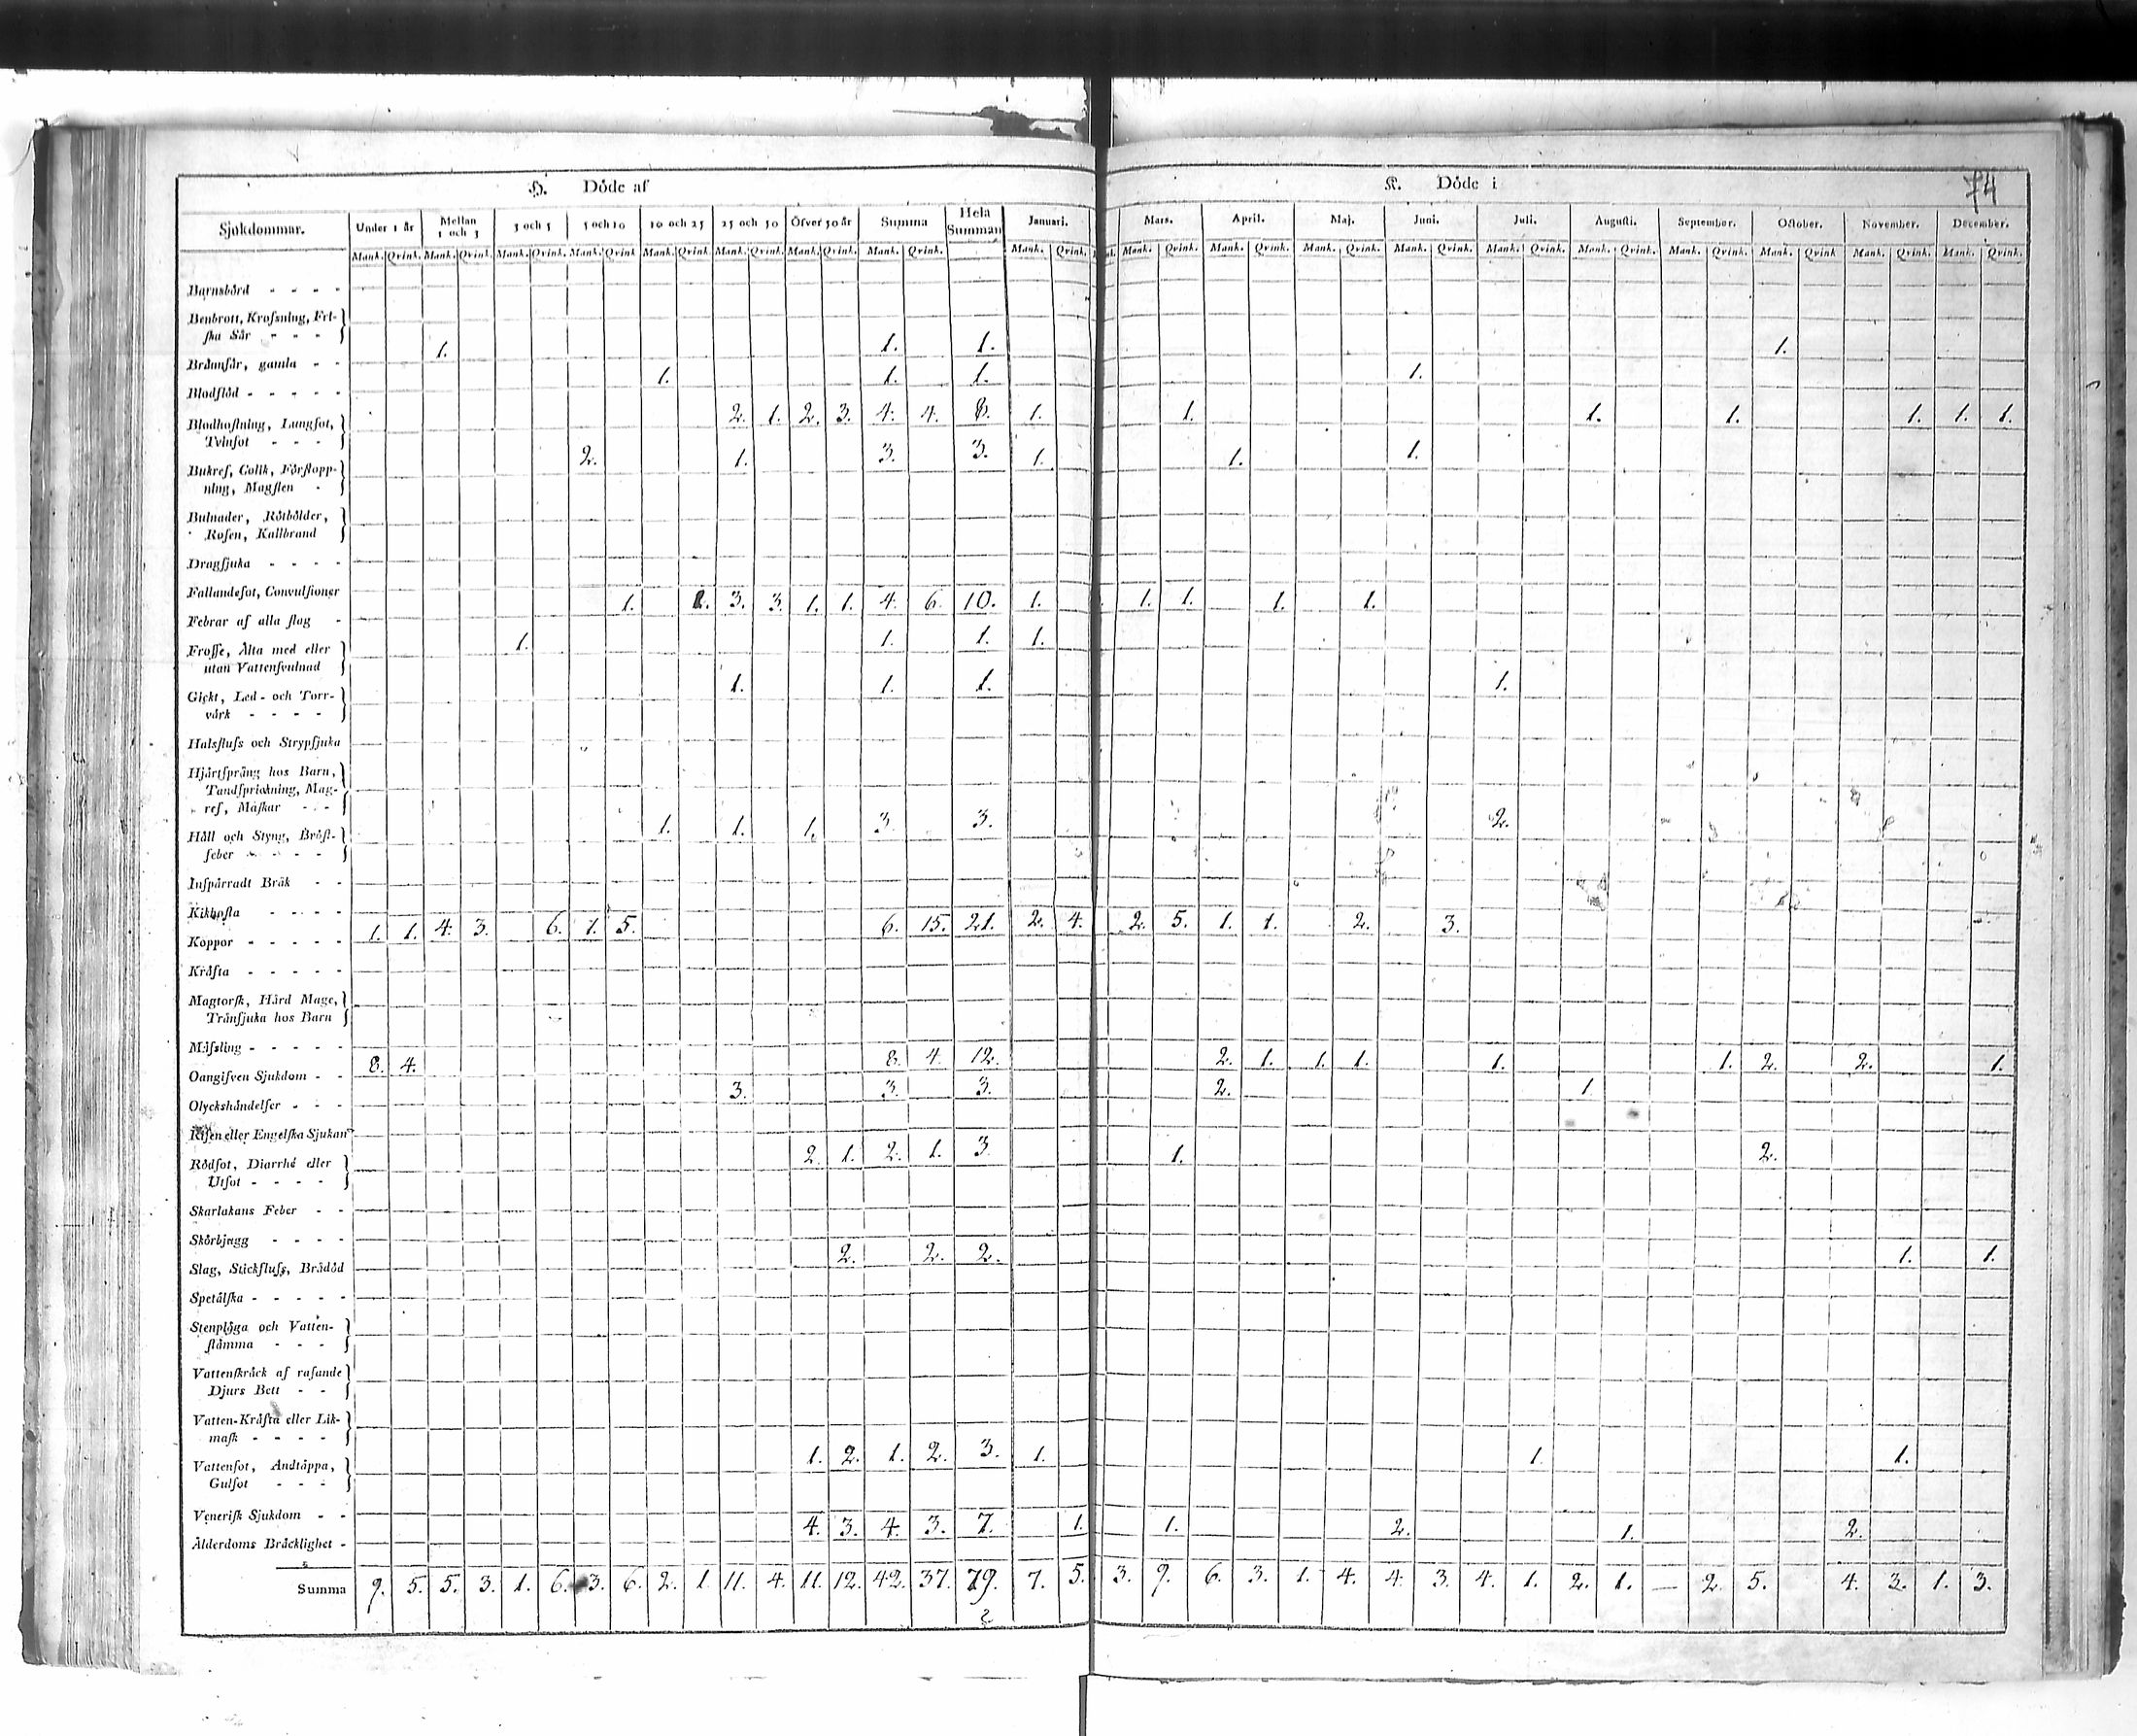 H. Döde af K. Döde i 74
Sjukdommar. Under 1 år Mellan 1 och 3 3 och 5 5 och 10 10 och 25 25 och 50 Öfver 50 år Summa Hela Summan Januari. Mars. April. Maj. Juni. Juli. Augusti. September. October. November. December.
Mank. Qvink. Mank. Qvink. Mank. Qvink. Mank. Qvink Mank. Qvink Mank. Qvink. Mank. Qvink. Mank. Qvink. Mank. Qvink. Mank. Qvink. Mank. Qvink. Mank. Qvink. Mank. Qvink. Mank. Qvink. Mank. Qvink. Mank. Qvink. Mank. Qvink Mank. Qvink. Mank. Qvink.
Barnsbörd - - - -
Benbrott, Krossning, Friska Sår - - - 1. 1. 1. 1.
Brännsår, gamla - - 1. 1. 1. 1.
Blodflöd - - - - -
Blodhostning, Lungsot, Tvinsot - - - 2. 1. 2. 3. 4. 4. 8. 1. 1. 1. 1. 1. 1. 1.
Bukref, Colik, Förstoppning, Magsten - 2. 1. 3. 3. 1. 1. 1.
Bulnader, Rötbölder, Rosen, Kallbrand
Dragsjuka - - - -
Fallandesot, Convulsioner
Febrar af alla slag - 1. 1. 3. 3. 1. 1. 4. 6. 10. 1. 1. 1. 1. 1.
Frosse, Älta med eller utan Vattensvulnad 1. 1. 1. 1.
Gickt, Led- och Torrvärk - - - - 1. 1. 1. 1.
Halsfluss och Strypsjuka
Hjärtsprång hos Barn, Tandsprickning, Magref, Maskar - - -
Håll och Styng, Bröstfeber - - - - 1. 1. 1. 3. 3. 2.
Inspärradt Bråk - -
Kikhosta - - - -
Koppor - - - - - 1. 1. 4. 3. 6. 1. 5. 6. 15. 21. 2. 4. 2. 5. 1. 1. 2. 3.
Kräfta - - - - -
Magtorsk, Hård Mage, Trånsjuka hos Barn
Mässling - - - - -
Oangifven Sjukdom - - 8. 4. 8. 4. 12. 2. 1. 1. 1. 1. 1. 2. 2. 1.
Olyckshändelser - - - 3. 3. 3. 2. 1.
Risen eller Engelska Sjukan
Rödsot, Diarrhé eller Utsot - - - - 2. 1. 2. 1. 3. 1. 2.
Skarlakans Feber - -
Skörbjugg - - - -
Slag, Stickfluss, Brådöd 2. 2. 2. 1. 1.
Spetälska - - - - -
Stenplåga och Vattenstämma - - -
Vattenskräck af rasande Djurs Bett - -
Vatten-Kräfta eller Likmask - - - -
Vattensot, Andtäppa, Gulsot - - - 1. 2. 1. 2. 3. 1. 1. 1.
Venerisk Sjukdom - -
Ålderdoms Bräcklighet - 4. 3. 4. 3. 7. 1. 1. 2. 1. 2.
Summa 9. 5. 5. 3. 1. 6. 3. 6. 2. 1. 11. 4. 11. 12. 42. 37. 79. 7. 5. 3. 9. 6. 3. 1. 4. 4. 3. 4. 1. 2. 1. — 2. 5. 4. 3. 1. 3.